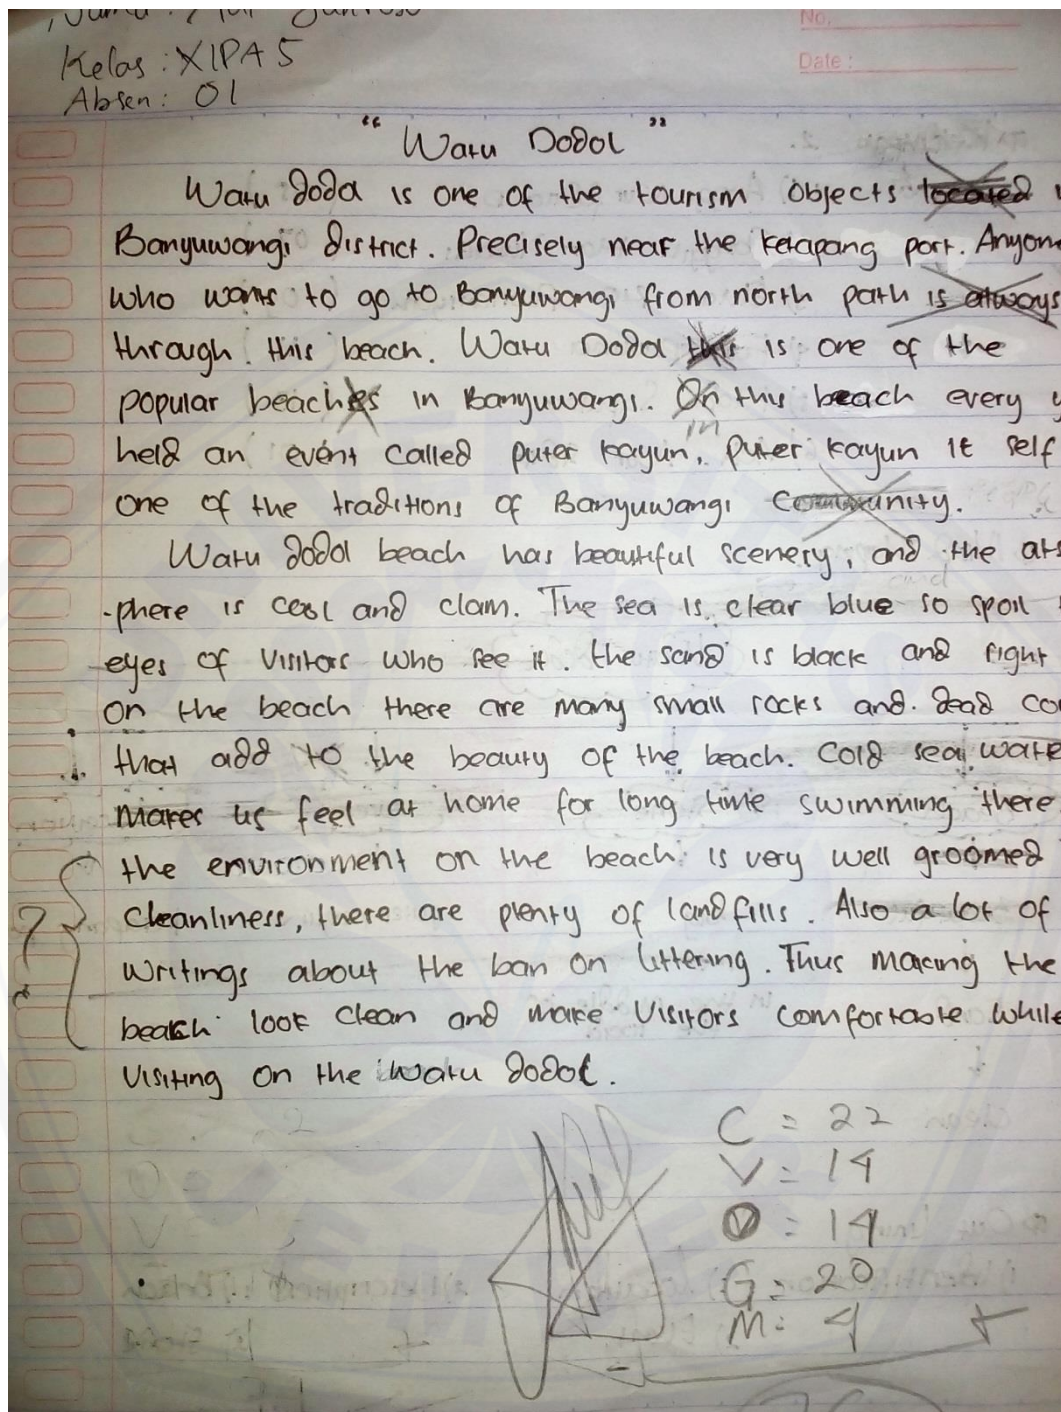 Kelas : XIPA 5
Absen : 01
No.
Date :
"Watu Dodol"
Watu dodol is one of the tourism objects located
Banyuwangi district. Precisely near the ketapang port. Anyon
who wants to go to Banyuwangi from north path is always
through this beach. Watu Dodol this is one of the
popular beaches in Banyuwangi. On this beach every y
in
held an event called puter kayun, puter kayun it self
one of the traditions of Banyuwangi Community.
Watu dodol beach has beautiful scenery, and the ats
-phere is cool and clam. The sea is clear blue so spoil
eyes of visitors who see it. the sand is black and right
on the beach there are many small rocks and dead co
that add to the beauty of the beach. Cold sea wate
makes us feel at home for long time swimming there
the environment on the beach is very well groomed
cleanliness, there are plenty of landfills. Also a lot of
writings about the ban on littering. Thus making the
beach look clean and make visitors comfortable while
visiting on the watu dodol.
?
C = 22
V = 14
O = 14
G = 20
M = 4
+